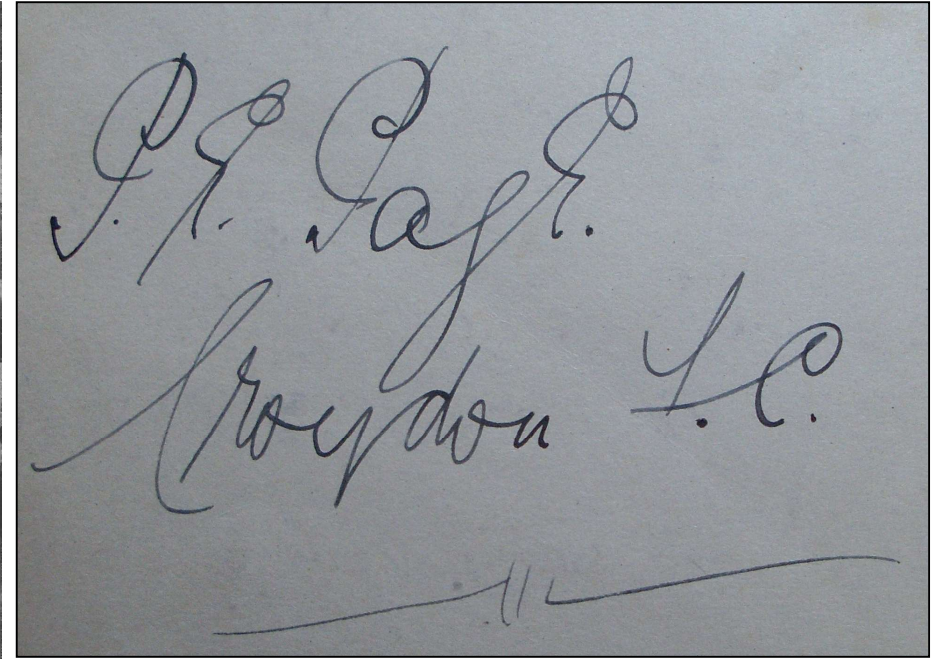 P. E. Page.
Croydon S.C.